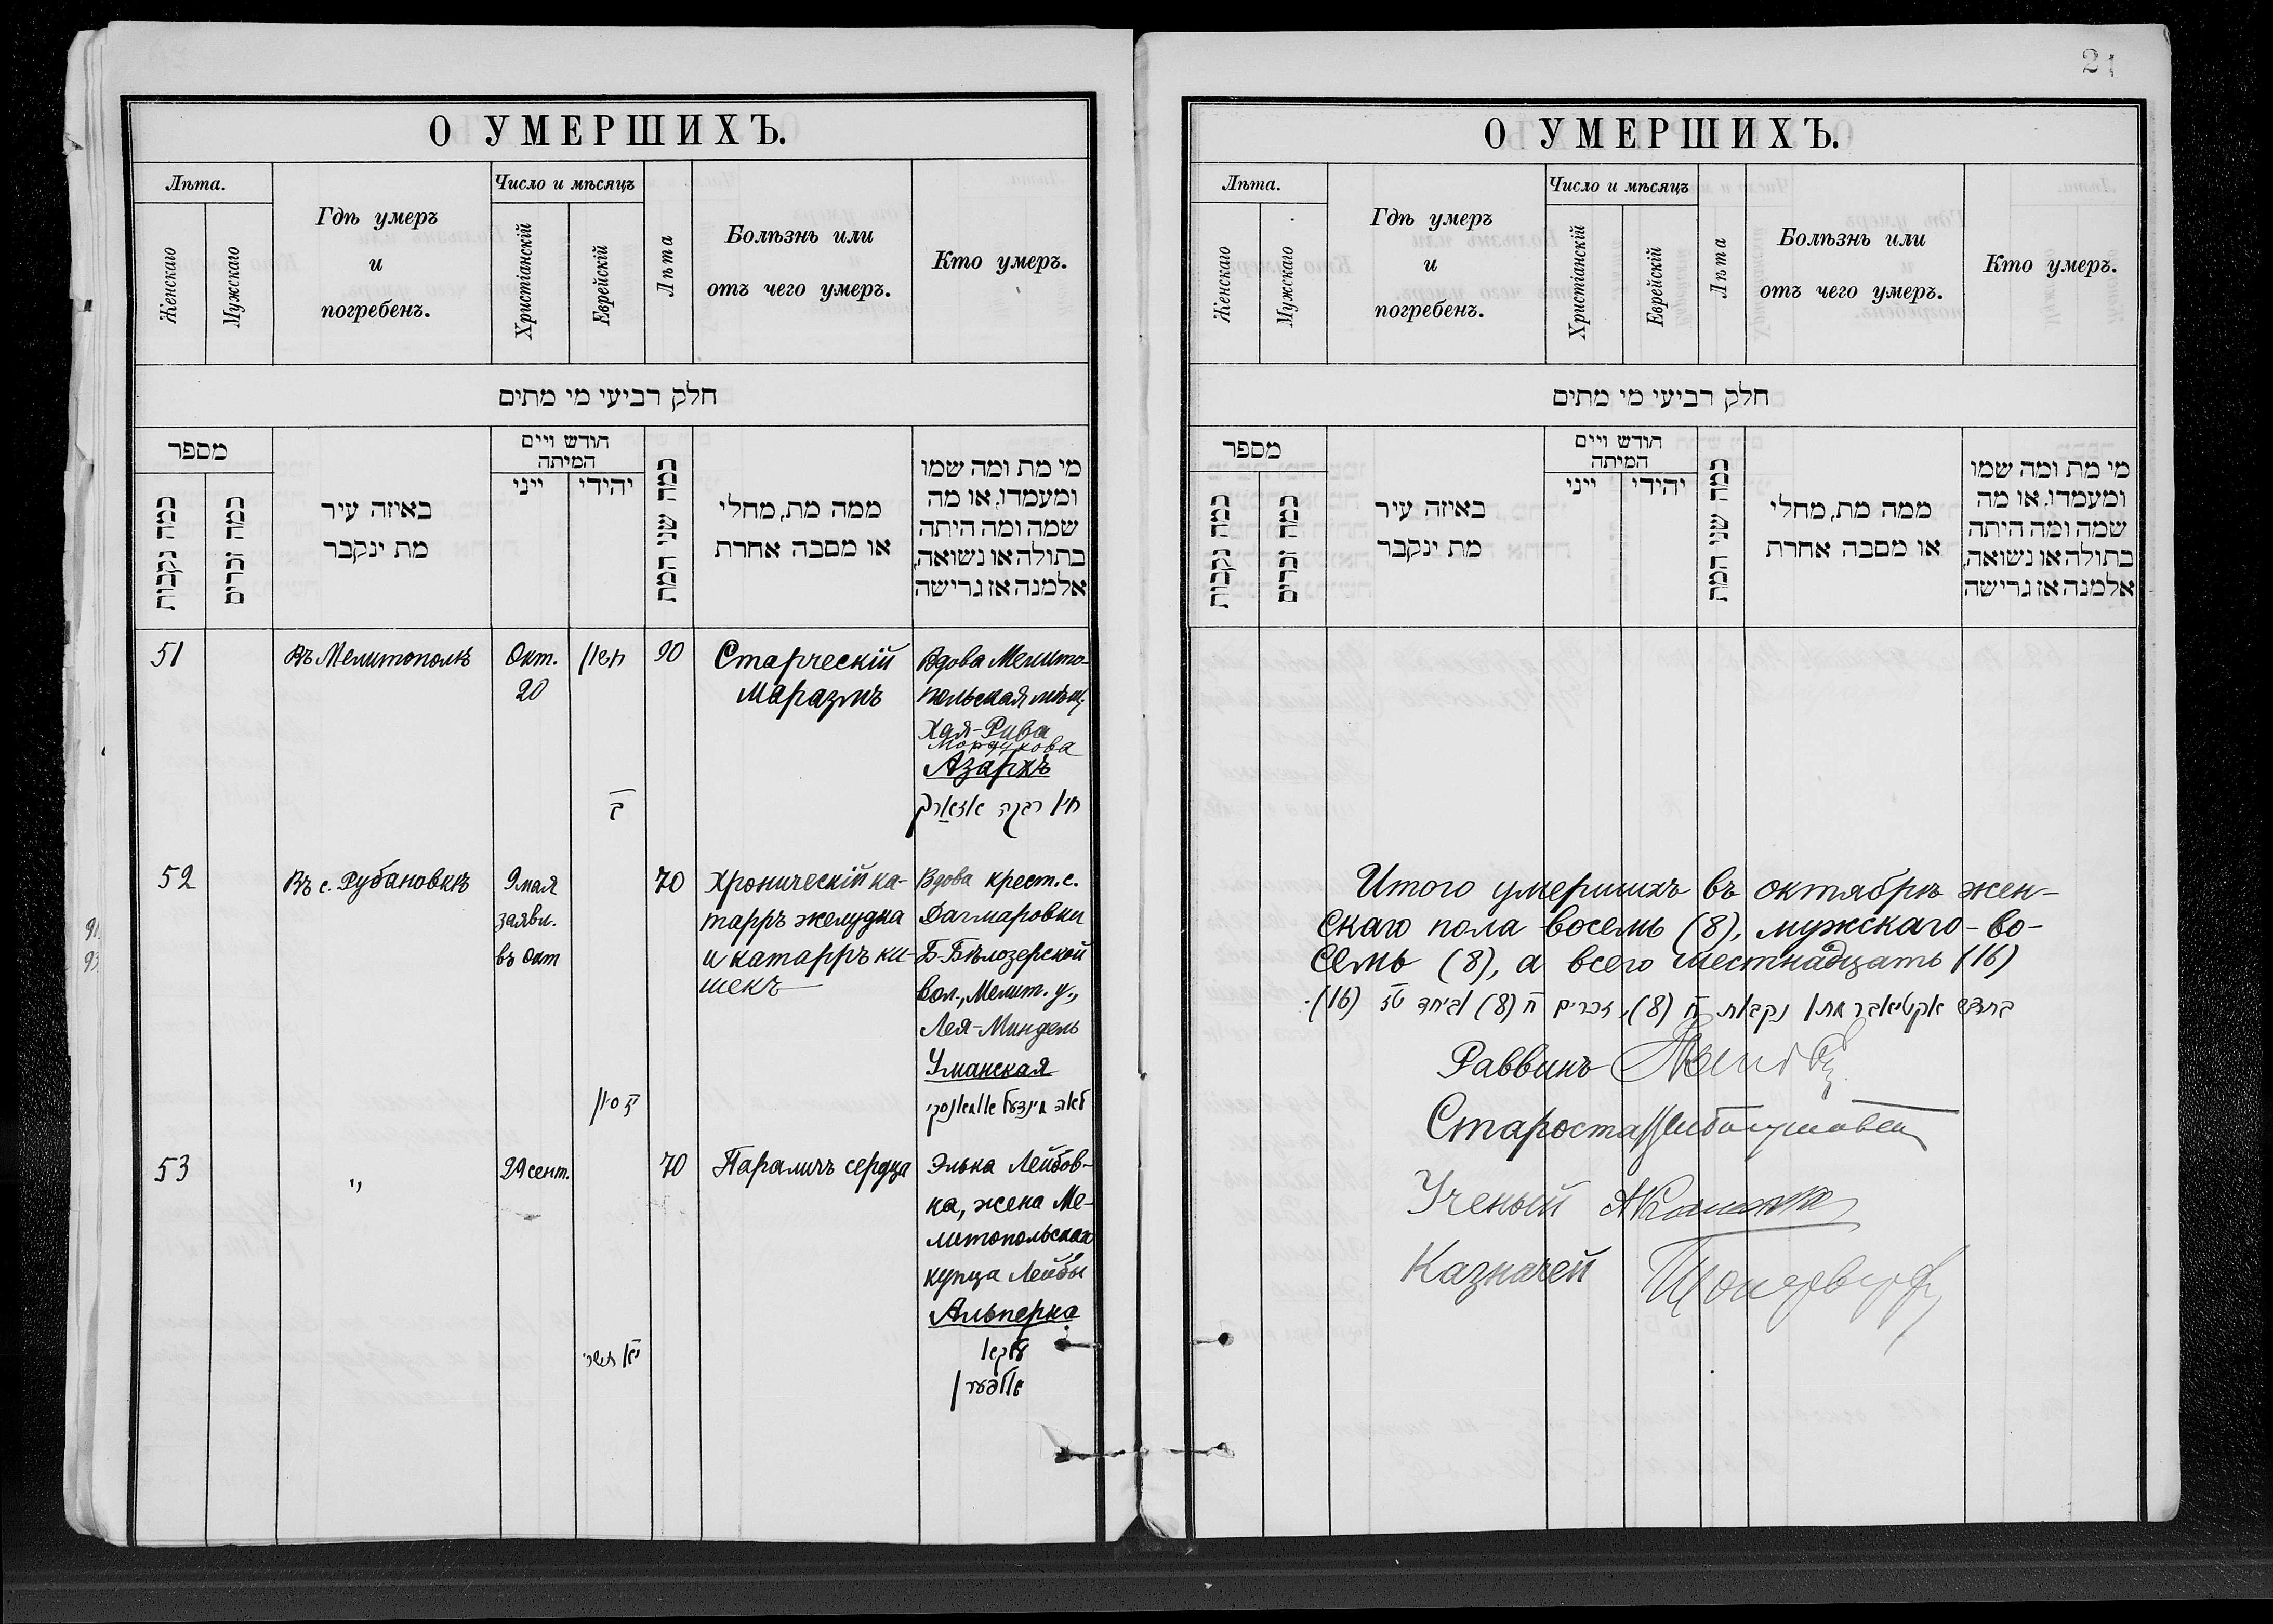 О УМЕРШИХЪ.
Лѣта.
Женскаго
Мужскаго
Гдѣ умеръ
и
погребенъ.
Число и мѣсяцъ
Христіанскій
Еврейскій
Лѣта
Болѣзнь или
отъ чего умеръ.
Кто умеръ.
חלק רביעי מי מתים
מספר
כמה נקבות
כמה זכרים
באיזה עיר
מת ינקבר
חודש ויים
המיתה
ייני
יהודי
כמה שני המת
ממה מת, מחלי
או מסבה אחרת
מי מת ומה שמו
ומעמדו, או מה
שמה ומה היתה
בתולה או נשואה,
אלמנה אז גרישה
51
Въ Мелитополѣ
Окт.
20
חשון
כ
90
Старческій
маразмъ
Вдова Мелито-
польская мѣщ.
Хая-Рива
Мордукова
Азархъ
חיו רבקה אזארק
52
Въ с. Рубановкѣ
9 мая
заявл.
въ Окт
סיון
70
Хроническій ка-
тарръ желудка
и катарръ ки-
шекъ
Вдова крест. с.
Дагмаровки
Б-Бѣлозерской
вол., Мелит. у.,
Лея-Миндель
Уманская
לאה מינדעל אומאנסקי
53
"
29 сент.
יא תשרי
70
Параличъ сердца
Элька Лейбов-
на, жена Ме-
литопольскаго
купца Лейбы
Альперна
עלקא
אלפערן
21
О УМЕРШИХЪ.
Лѣта.
Женскаго
Мужскаго
Гдѣ умеръ
и
погребенъ.
Число и мѣсяцъ
Христіанскій
Еврейскій
Лѣта
Болѣзнь или
отъ чего умеръ.
Кто умеръ.
חלק רביעי מי מתים
מספר
כמה נקבות
כמה זכרים
באיזה עיר
מת ינקבר
חודש ויים
המיתה
ייני
יהודי
כמה שני המת
ממה מת, מחלי
או מסבה אחרת
מי מת ומה שמו
ומעמדו, או מה
שמה ומה היתה
בתולה או נשואה,
אלמנה אז גרישה
Итого умершихъ въ октябрѣ жен-
скаго пола восемь (8), мужскаго - во-
семь (8), а всего шестнадцать (16)
בחדש אקטיאבר מתו נקבות ח (8), זכרים ח (8) וביחד טז (16).
Раввинъ
Староста
Ученый
Казначей